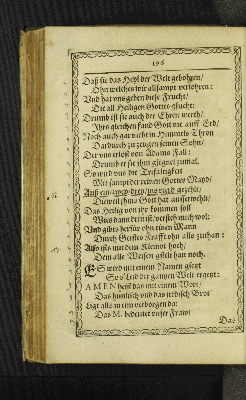 196
Daß sie das Heyl der Welt gebohren/
Ohn welches wir allsampt verlohren:
Und hat uns geben diese Frucht/
Die all Heiligen Gottes gsucht:
Drumb ist sie auch der Ehren werth/
Ihrs gleichen fand Gott nie auff Erd/
Noch auch gar nicht in Himmels Thron
Dardurch zu zeugen seinen Sohn/
Der uns erlöst von Adams Fall:
Drumb er sie ihm zeignet zumal.
So wird uns die Dreyfaltigkeit
Mit sampt der reinen Gottes Mayd/
Auff ein
Dieweil ihns Gott hat außerwehlt/
Das Heilig von ihr kommen soll
Wies dann drin ist/ versteh mich wol:
Und gibts herfür ohn einen Mann
Durch Geistes Krafft ohn alls zuthan:
Also ists mit dem Kleinot hoch/
Dem alle Weisen gstelt han noch.
ES wird mit einem Namen gsetzt
So s'Leid der gantzen Welt ergetzt:
AMEN heist das mit einem Wort/
Das himlisch und das irdisch Brot
Ligt alls in ein verborgen da:
Das M. bedeutet unser Fraw/
Das